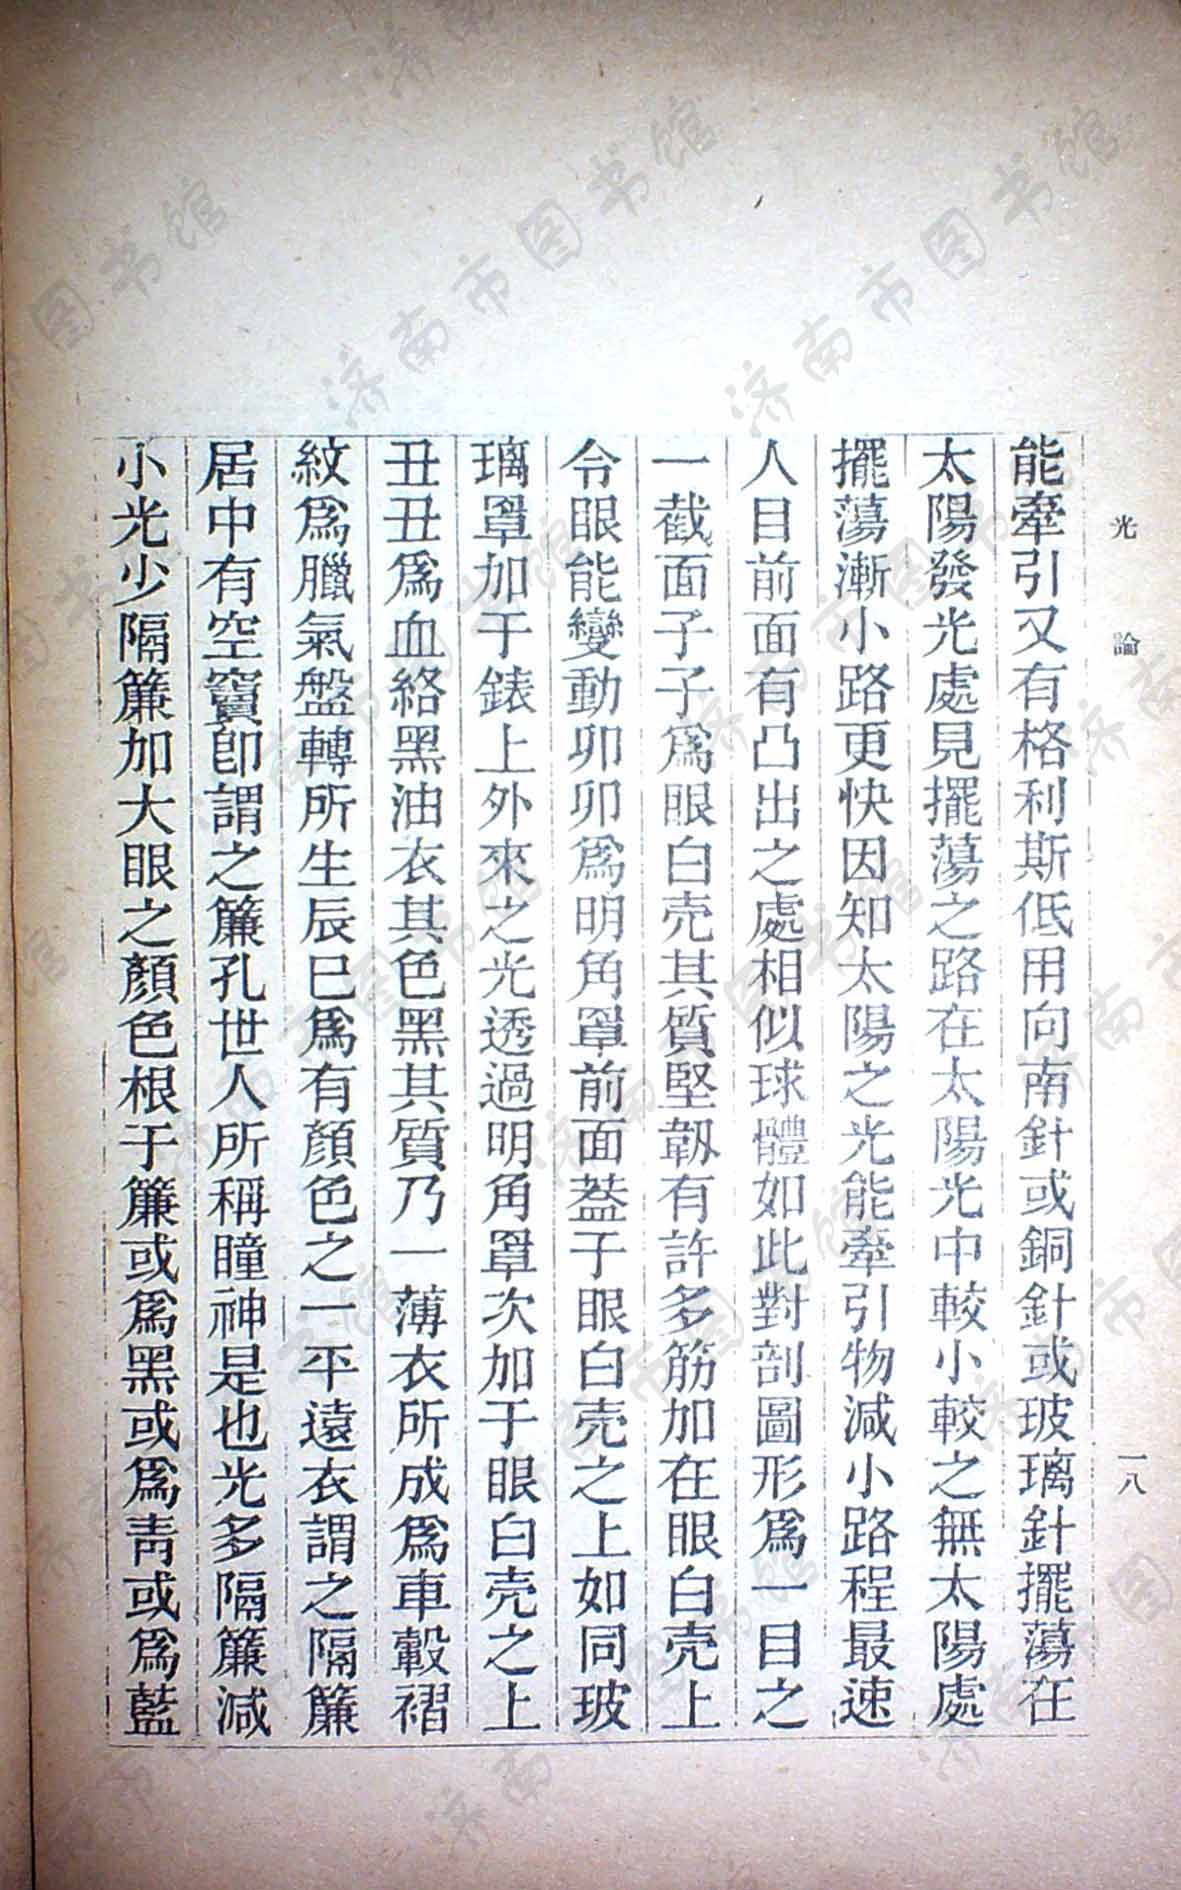 光論
一八
能牽引又有格利斯低用向南針或銅針或玻璃針擺蕩在
太陽發光處見擺蕩之路在太陽光中較小較之無太陽處
擺蕩漸小路更快因知太陽之光能牽引物減小路程最速
人目前面有凸出之處相似球體如此對剖圖形爲一目之
一截面子子爲眼白壳其質堅韌有許多筋加在眼白壳上
令眼能變動卯卯爲明角罩前面蓋于眼白壳之上如同玻
璃罩加于錶上外來之光透過明角罩次加于眼白壳之上
丑丑爲血絡黑油衣其色黑其質乃一薄衣所成爲車轂褶
紋爲臘氣盤轉所生辰巳爲有顏色之一平遠衣謂之隔簾
居中有空竇卽謂之簾孔世人所稱瞳神是也光多隔簾減
小光少隔簾加大眼之顏色根于簾或爲黑或爲靑或爲藍
济南市图书馆